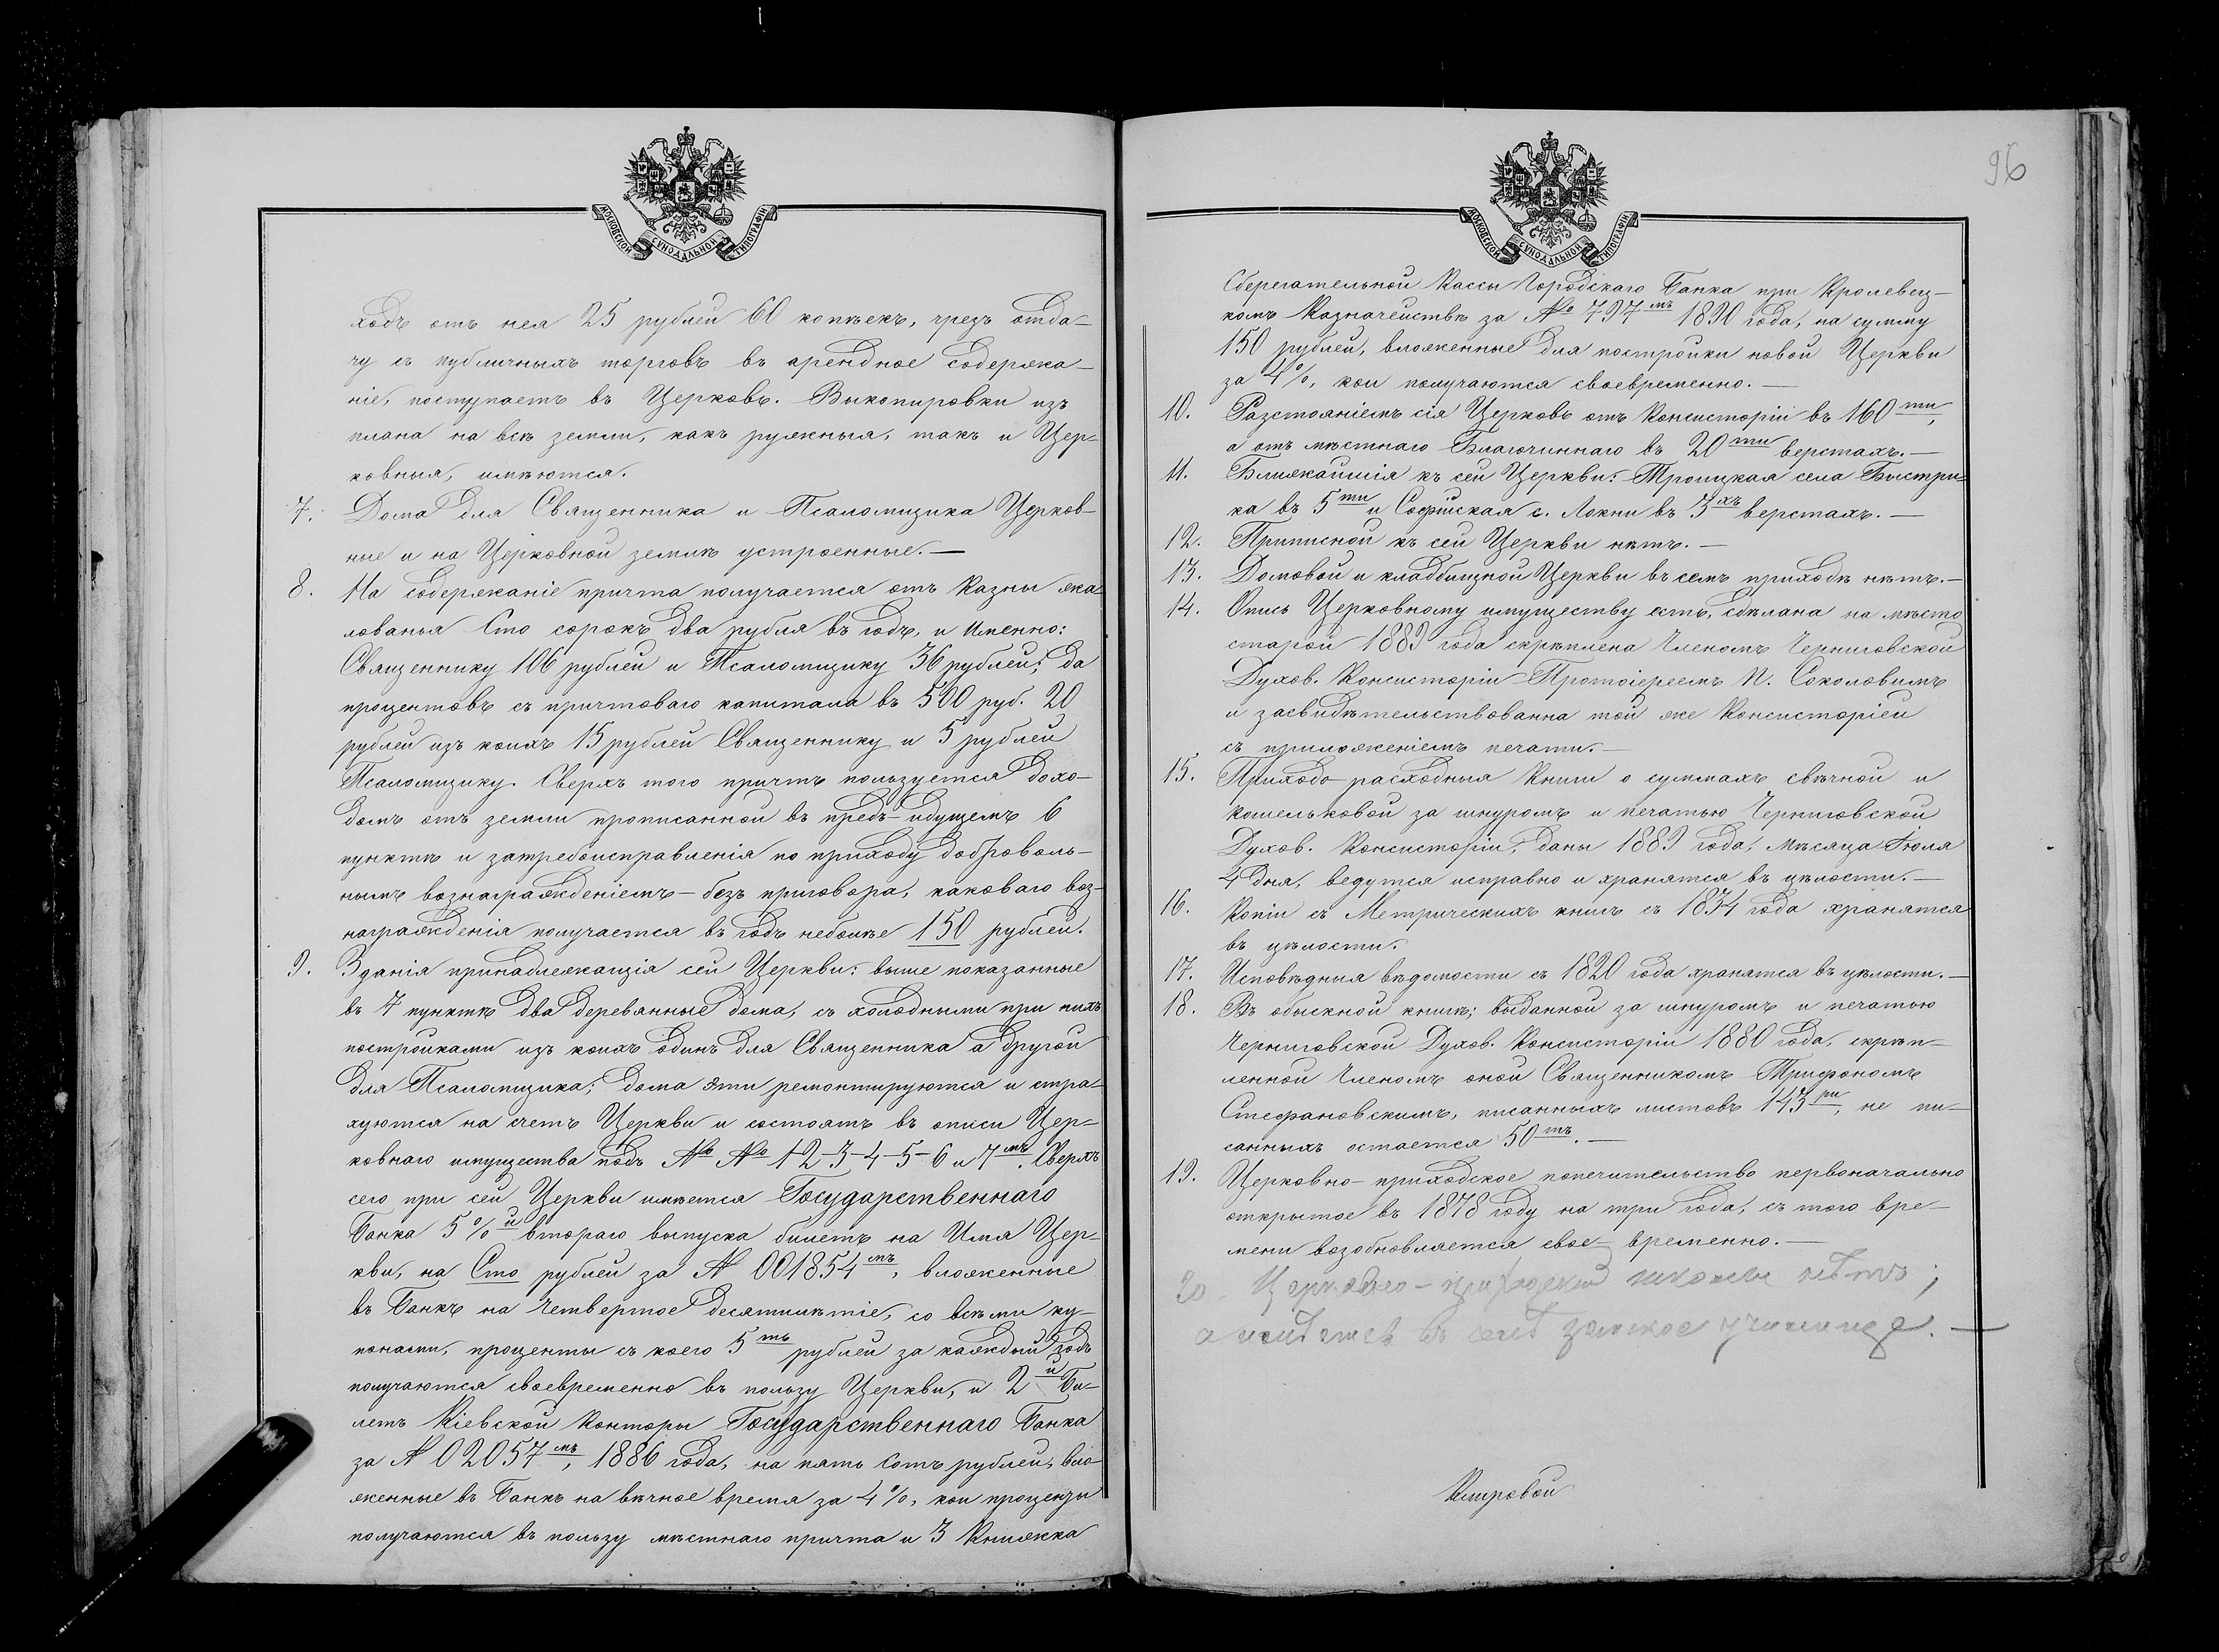 МОСКОВСКОЙ СУНОДАЛЬНОЙ ТИПОГРАФІИ
ходъ отъ нея 25 рублей 60 копѣекъ, чрезъ отда-
чу съ публичныхъ торговъ въ арендное содержа-
ніе, поступаетъ въ Церковь. Выкопировки изъ
плана на всѣ земли, какъ ружныя, такъ и Цер-
ковныя, имѣются.
7. Дома для Священника и Псаломщика Церков-
ные и на Церковной землѣ устроенные. —
8. На содержаніе причта получается отъ Казны жа-
лованья Сто сорокъ два рубля въ годъ, и Именно:
Священнику 106 рублей и Псаломщику 36 рублей; да
процентовъ съ причтоваго капитала въ 500 руб. 20
рублей изъ коихъ 15 рублей Священнику и 5 рублей
Псаломщику. Сверхъ того причтъ пользуется дохо-
домъ отъ земли прописанной въ предъ-идущемъ 6
пунктѣ и за требоисправленія по приходу доброволь-
нымъ вознагражденіемъ - безъ приговора, каковаго воз-
награжденія получается въ годъ неболѣе 150 рублей.
9. Зданія принадлежащія сей Церкви: выше показанные
въ 7 пунктѣ два деревянные дома, съ холодными при нихъ
постройками изъ коихъ одинъ для Священника а другой
для Псаломщика; дома эти ремонтируются и стра-
хуются на счетъ Церкви и состоятъ въ описи Цер-
ковнаго имущества подъ №№ 1-2-3-4-5-6 и 7мъ. Сверхъ
сего при сей Церкви имѣется Государственнаго
Банка 5%й втораго выпуска билетъ на Имя Цер-
кви, на Сто рублей за № 001854мъ, вложенные
въ Банкъ на Четвертое десятилѣтіе, со всѣми ку-
понами, проценты съ коего 5ть рублей за каждый годъ
получаются своевременно въ пользу Церкви, и 2й Би-
летъ Кіевской Конторы Государственнаго Банка
за № 02057мъ, 1886 года, на пять Сотъ рублей, вло-
женные въ Банкъ на вѣчное время за 4%, кои проценты
получаются въ пользу мѣстнаго причта и 3 Книжка
96
МОСКОВСКОЙ СУНОДАЛЬНОЙ ТИПОГРАФІИ
Сберегательной Кассы Городскаго Банка при Кролевец-
комъ Казначействѣ за № 797мъ 1890 года, на сумму
150 рублей, вложенные для постройки новой Церкви
за 4%, кои получаются своевременно. —
10. Разстояніемъ сія Церковь отъ Консисторіи въ 160ти,
а отъ мѣстнаго Благочиннаго въ 20ти верстахъ. —
11. Ближайшія къ сей Церкви: Троицкая села Быстри-
ка въ 5ти и Софійская с. Локни въ 3хъ верстахъ. —
12. Приписной къ сей Церкви нѣтъ. —
13. Домовой и кладбищной Церкви въ семъ приходѣ нѣтъ. —
14. Опись Церковному имуществу есть, сдѣлана на мѣсто
старой 1889 года скрѣплена Членомъ Черниговской
Духов. Консисторіи Протоіереемъ П. Соколовымъ
и засвидѣтельствованна той же Консисторіей
съ приложеніемъ печати. —
15. Приходо-расходныя Книги о суммахъ свѣчной и
кошельковой за шнуромъ и печатью Черниговской
Духов. Консисторіи, даны 1889 года, Мѣсяца Іюля
4 дня, ведутся исправно и хранятся въ цѣлости. —
16. Копіи съ Метрическихъ книгъ съ 1834 года хранятся
въ цѣлости.
17. Исповѣдныя вѣдомости съ 1820 года хранятся въ цѣлости. —
18. Въ обыскной книгѣ; выданной за шнуромъ и печатью
Черниговской Духов. Консисторіи 1880 года, скрѣп-
ленной Членомъ оной Священникомъ Трифономъ
Стефановскимъ, писанныхъ листовъ 143ри, не пи-
санныхъ остается 50тъ. —
19. Церковно-приходское попечительство первоначально
открытое въ 1878 году на три года, съ того вре-
мени возобновляется свое-временно. —
20. Церковно-приходской школы нѣтъ;
а имѣется въ селѣ земское училище. —
Клировой